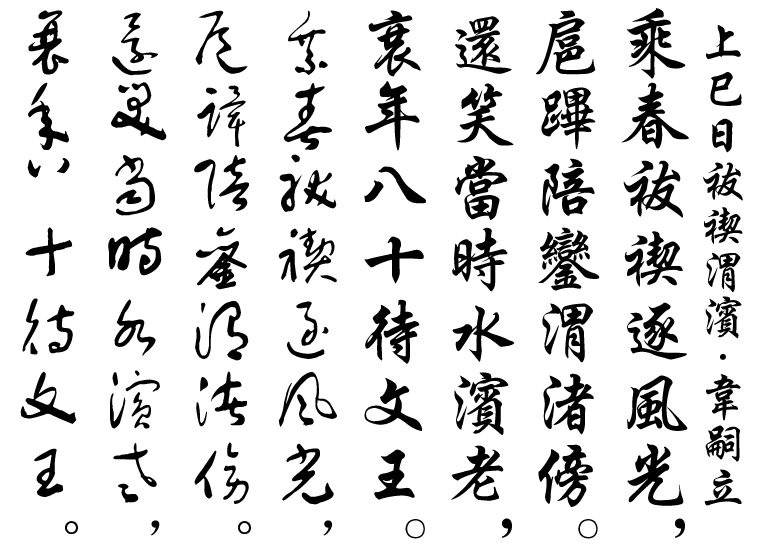 上巳日祓禊渭濱·韋嗣立
乘春祓禊逐風光，
扈蹕陪鑾渭渚傍。
還笑當時水濱老，
衰年八十待文王。
乘春祓禊逐風光，
扈蹕陪鑾渭渚傍。
還笑當時水濱老，
衰年八十待文王。